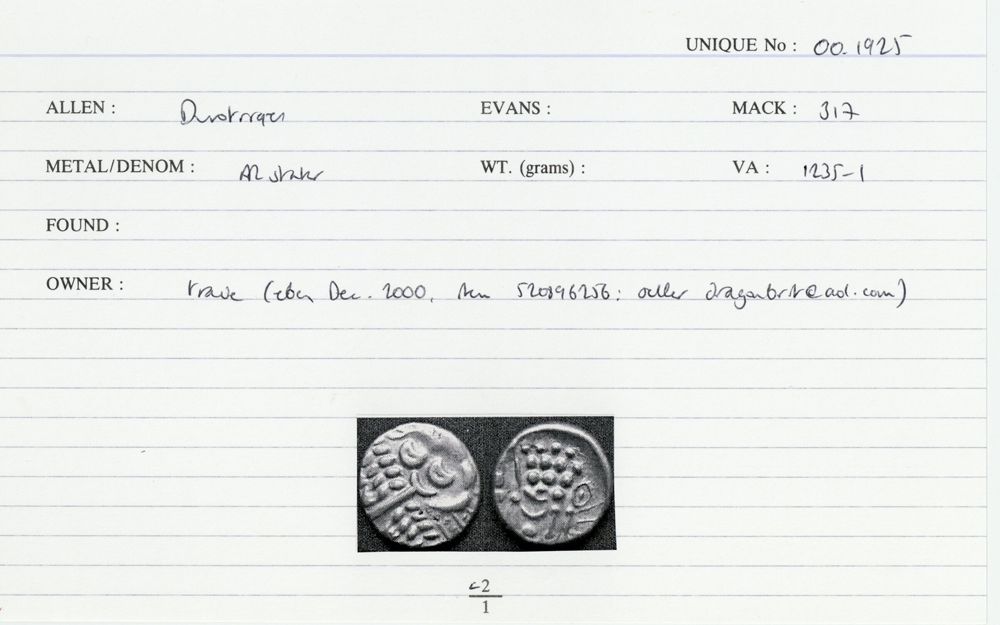 UNIQUE No : 00.1925
ALLEN : Durotriges EVANS : MACK : 317
METAL/DENOM : AR stater WT. (grams) : VA : 1235-1
FOUND :
OWNER : trade (ebay Dec. 2000, item 520896256; seller dragonbrit@aol.com)
c2
1